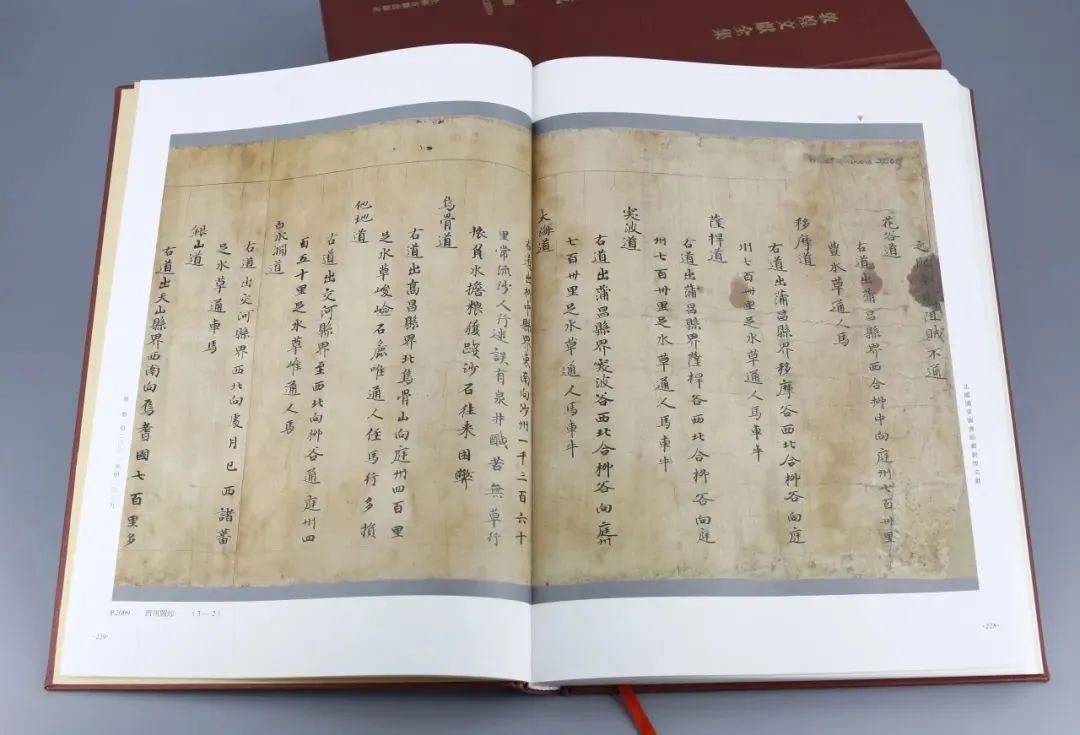 敦煌文獻全集
法國國家圖書館藏敦煌文獻
阻賊不通
花谷道
右道出蒲昌縣界西合柳中向庭州七百卅里
豐水草通人馬
移摩道
右道出蒲昌縣界移摩谷西北合柳谷向庭
州七百卅里足水草通人馬車牛
薩捍道
右道出蒲昌縣界薩捍谷西北合柳谷向庭
州七百卅里足水草通人馬車牛
突波道
右道出蒲昌縣界突波谷西北合柳谷向庭州
七百卅里足水草通人馬車牛
大海道
右道出柳中縣界東南向沙州一千三百六十
里常流沙人行迷誤有泉井鹹苦無草行
旅負水擔粮履踐沙石往來困弊
烏骨道
右道出高昌縣界北烏骨山向庭州四百里
足水草峻嶮石麁唯通人徑馬行多損
他地道
右道出交河縣界至西北向柳谷通庭州四
百五十里足水草唯通人馬
白水澗道
右道出交河縣界西北向處月已西諸蕃
足水草通車馬
銀山道
右道出天山縣界西南向焉耆國七百里多
P.2009 西州圖經 (3—2)
·229·
·228·